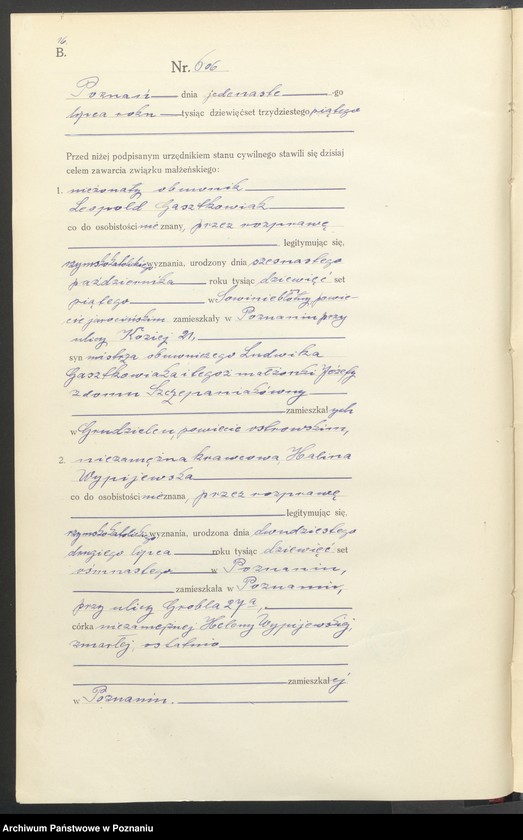 B.
Nr. 606
Poznań dnia jedenaste go
lipca roku tysiąc dziewięćset trzydziestego piątego
Przed niżej podpisanym urzędnikiem stanu cywilnego stawili się dzisiaj
celem zawarcia związku małżeńskiego:
1. nieżonaty obuwnik
Leopold Gasztkowiak
co do osobistości nieznany, przez rozprawę
legitymując się,
rzymskokatolickiego wyznania, urodzony dnia szesnastego
października roku tysiąc dziewięć set
piątego w Sowinie błotnej powie-
cie jarocińskim zamieszkały w Poznaniu przy
ulicy Koziej 21,
syn mistrza obuwniczego Ludwika
Gasztkowiaka i tegoż małżonki Józefy
z domu Szczepaniakówny
zamieszkałych
w Grudzielcu, powiecie ostrowskim,
2. niezamężna krawcowa, Halina
Wypijewska
co do osobistości nieznana, przez rozprawę
legitymując się,
rzymskokatolickiego wyznania, urodzona dnia dwudziestego
drugiego lipca roku tysiąc dziewięć set
ośmnastego w Poznaniu,
zamieszkała w Poznaniu,
przy ulicy Grobla 27a,
córka niezamężnej Heleny Wypijewskiej,
zmarłej, ostatnio
zamieszkałej
w Poznaniu.
Archiwum Państwowe w Poznaniu